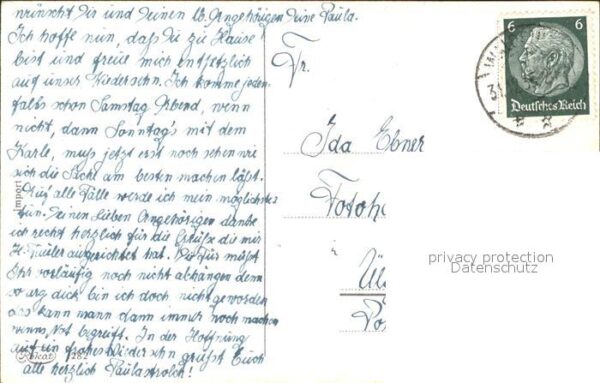 wünscht Dir und Deinen lb. Angehörigen Deine Paula.
Ich hoffe nun, daß du zu Hause
bist und freue mich entsetzlich
auf unser Wiedersehn. Ich komme jeden-
falls schon Samstag Abend, wenn
nicht, dann Sonntag's mit dem
Karle, muß jetzt erst noch sehen wie
sich die Sache am besten machen läßt.
Auf alle Fälle werde ich mein möglichstes
tun. Deinen lieben Angehörigen danke
ich recht herzlich für die Grüße die mir
ausgerichtet hat. Dafür müßt
Ihr vorläufig noch nicht abhängen denn
so arg dick bin ich doch nicht geworden
das kann mann dann immer noch machen
wenns Not begreift. In der Hoffnung
auf ein frohes Wiedersehn grüßt Euch
alle herzlich
Import
282
Fr.
Ida Ebner
Fotoh
6 6
Deutsches Reich
31
privacy protection
Datenschutz